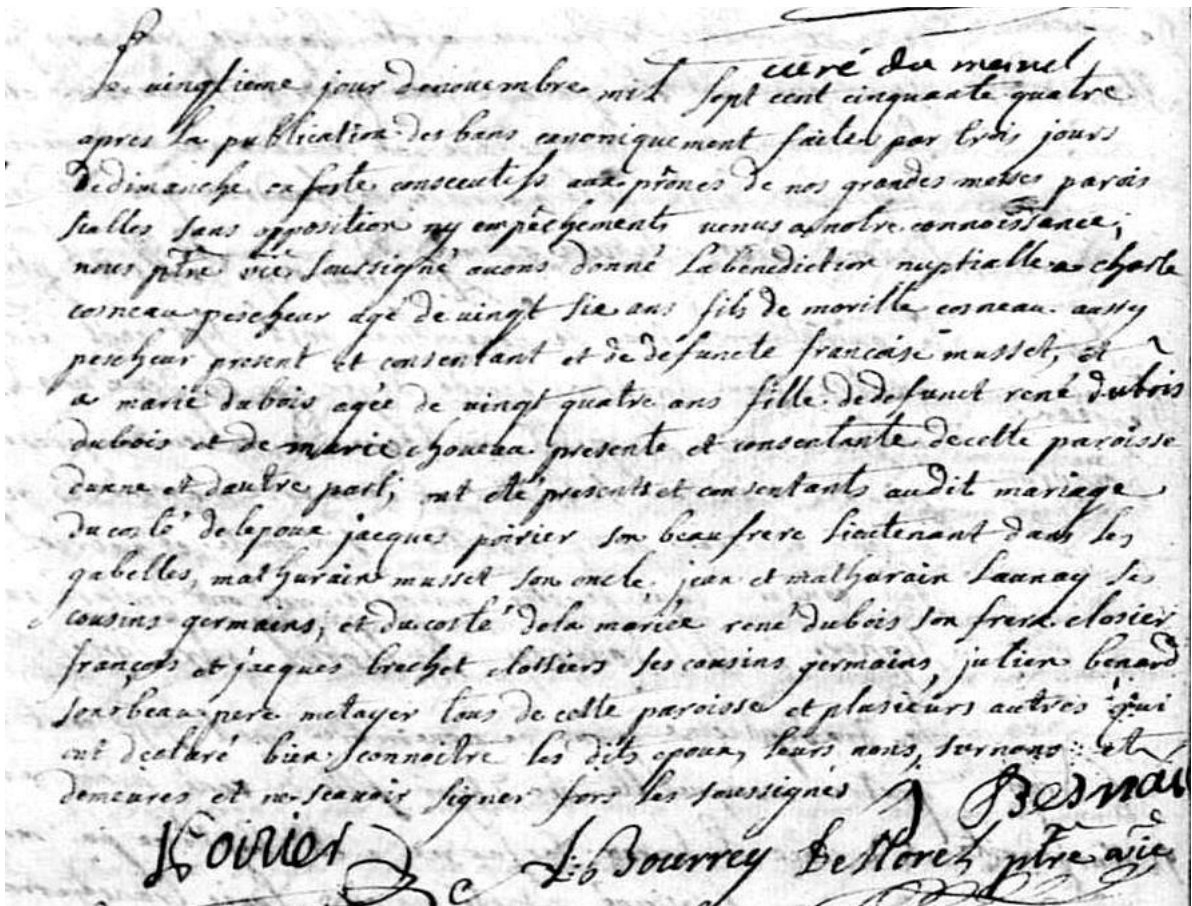 curé du menil
Le vingtieme jour denovembre mil sept cent cinquante quatre
apres la publication des bans canoniquement faitte par trois jours
de dimanche ou feste consecutifs aux prônes de nos grandes messes parois
sialles sans opposition ny empêchements venus a notre connoissance,
nous ptre vic soussigné avons donné la benediction nuptialle a charle
cosneau pescheur agé de vingt six ans fils de morille cosneau aussy
pescheur present et consentant et de defuncte francoise musset, et
a marie dubois agée de vingt quatre ans fille dedefunct rené dubois
dubois et de marie choveau presente et consentante decette paroisse
dune et dautre part; ont eté presents et consentants audit mariage
du costé delepoux jacques poirier son beau frere lieutenant dans les
gabelles, mathurain musset son oncle, jean et mathurain Launay ses
cousins germains, et ducosté dela mariée rené dubois son frere closier
françois et jacques brechet clossiers ses cousins germains, julien benard
son beau pere metayer tous de cette paroisse et plusieurs autres qui
ont declaré bien connoitre les dits epoux, leurs noms, surnoms et
demeures et ne scavoir signer fors les soussignés
J Besnar
Poirier L: Bourrey ptre vic